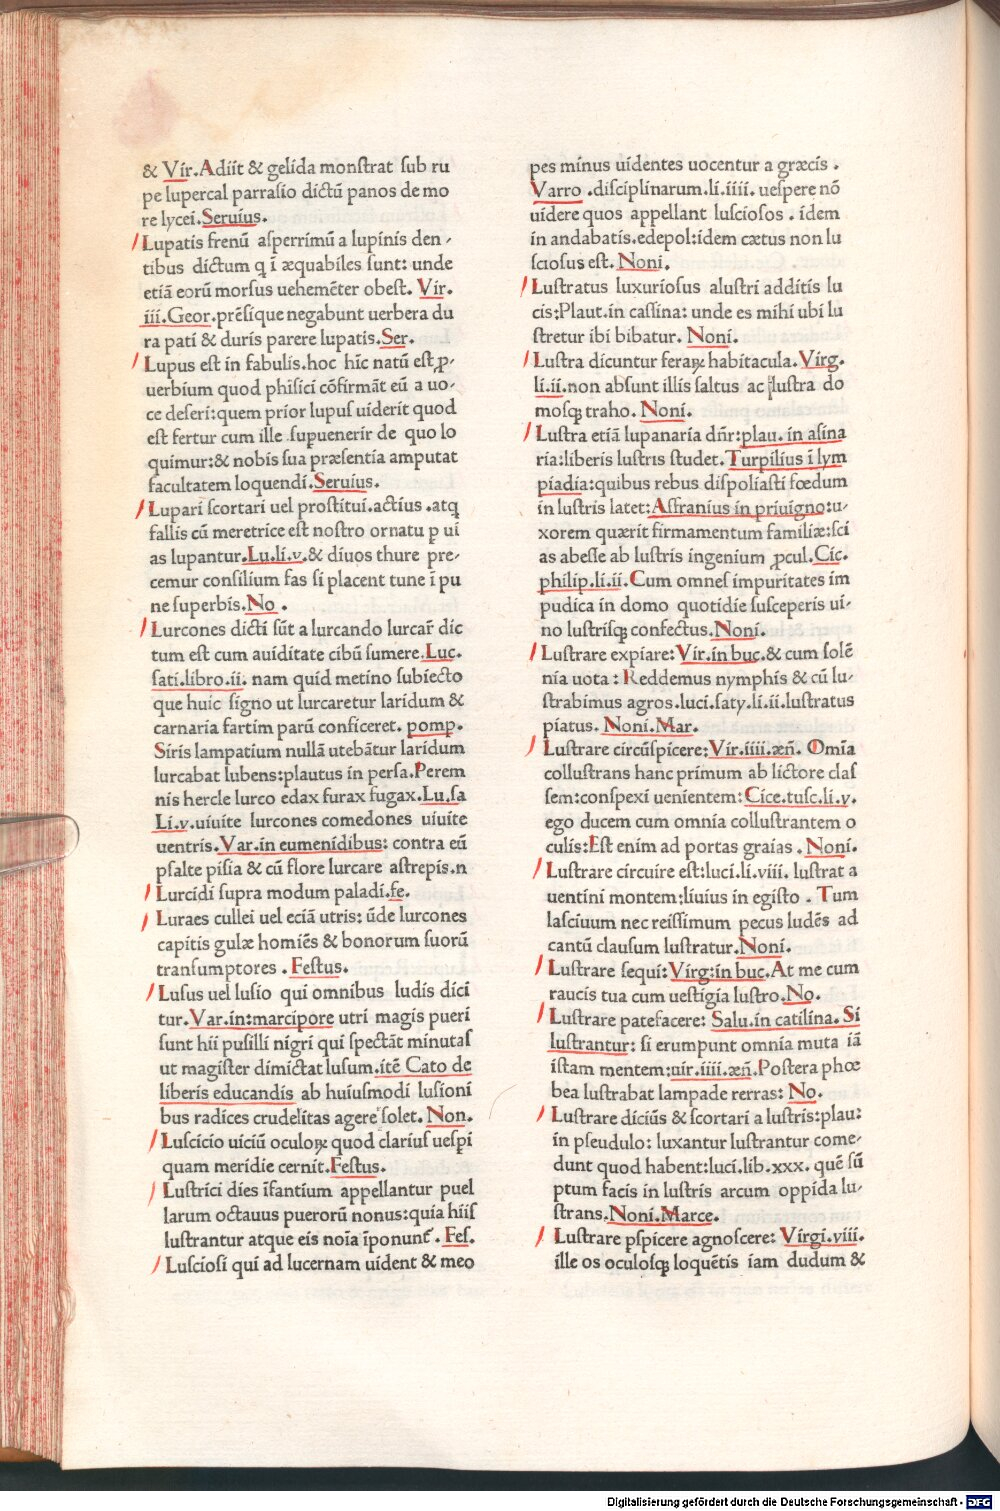 & Vir. Adiit & gelida monſtrat ſub ru
pe lupercal parraſio dictū panos de mo
re lycei. Seruius.
Lupatis frenū aſperrimū a lupinis den-
tibus dictum q ī æquabiles ſunt: unde
etiā eorū morſus uehemēter obeſt. Vir.
iii. Geor. prēſique negabunt uerbera du
ra pati & duris parere lupatis. Ser.
Lupus eſt in fabulis. hoc hic natū eſt ꝓ-
uerbium quod phiſici cōfirmāt eū a uo-
ce deſeri: quem prior lupuſ uiderit quod
eſt fertur cum ille ſupuenerir de quo lo
quimur: & nobis ſua præſentia amputat
facultatem loquendi. Seruius.
Lupari ſcortari uel proſtitui. actius. atq
fallis cū meretrice eſt noſtro ornatu p ui
as lupantur. Lu. li. v. & diuos thure pre-
cemur conſilium fas ſi placent tune ī pu
ne ſuperbis. No.
Lurcones dicti ſūt a lurcando lurcar̄ dic
tum eſt cum auiditate cibū ſumere. Luc.
ſati. libro. ii. nam quid metino ſubiecto
que huic ſigno ut lurcaretur laridum &
carnaria fartim parū conficeret. pomp.
Siris lampatium nullā utebātur laridum
lurcabat lubens: plautus in perſa. Perem
nis hercle lurco edax furax fugax. Lu. ſa
Li. v. uiuite lurcones comedones uiuite
uentris. Var. in eumenidibus: contra eū
pſalte piſia & cū flore lurcare aſtrepis. n
Lurcidi ſupra modum paladi. fe.
Luraes cullei uel eciā utris: ūde lurcones
capitis gulæ homiēs & bonorum ſuorū
tranſumptores. Feſtus.
Luſus uel luſio qui omnibus ludis dici
tur. Var. in: marcipore utri magis pueri
ſunt hii puſilli nigri qui ſpectāt minutaſ
ut magiſter dimictat luſum. itē Cato de
liberis educandis ab huiuſmodi luſioni
bus radices crudelitas agere ſolet. Non.
Luſcicio uiciū oculoꝝ quod clariuſ ueſpi
quam meridie cernit. Feſtus.
Luſtrici dies īfantium appellantur puel
larum octauus puerorū nonus: quia hiiſ
luſtrantur atque eis noīa īponunt̄. Feſ.
Luſcioſi qui ad lucernam uident & meo
pes minus uidentes uocentur a græcis.
Varro. diſciplinarum. li. iiii. ueſpere nō
uidere quos appellant luſcioſos. idem
in andabatis. edepol: idem cætus non lu
ſcioſus eſt. Noni.
Luſtratus luxurioſus aluſtri additis lu
cis: Plaut. in caſſina: unde es mihi ubi lu
ſtretur ibi bibatur. Noni.
Luſtra dicuntur feraꝝ habitacula. Virg.
li. ii. non abſunt illis ſaltus ac luſtra do
moſqꝫ traho. Noni.
Luſtra etiā lupanaria dn̄r: plau. in aſina
ria: liberis luſtris ſtudet. Turpilius ī lym
piadia: quibus rebus diſpoliaſti fœdum
in luſtris latet: Aſſranius in priuigno: u-
xorem quærit firmamentum familiæ: ſci
as abeſſe ab luſtris ingenium ꝓcul. Cic.
philip. li. ii. Cum omneſ impuritates im
pudica in domo quotidie ſuſceperis ui-
no luſtriſqꝫ confectus. Noni.
Luſtrare expiare: Vir. in buc. & cum ſolē
nia uota: Reddemus nymphis & cū lu-
ſtrabimus agros. luci. ſaty. li. ii. luſtratus
piatus. Noni. Mar.
Luſtrare circūſpicere: Vir. iiii. æn̄. Omīa
colluſtrans hanc primum ab lictore claſ
ſem: conſpexi uenientem: Cice. tuſc. li. v.
ego ducem cum omnia colluſtrantem o
culis: Eſt enim ad portas graias. Noni.
Luſtrare circuire eſt: luci. li. viii. luſtrat a
uentini montem: liuius in egiſto. Tum
laſciuum nec reiſſimum pecus ludēs ad
cantū clauſum luſtratur. Noni.
Luſtrare ſequi: Virg: in buc. At me cum
raucis tua cum ueſtigia luſtro. No.
Luſtrare patefacere: Salu. in catilina. Si
luſtrantur: ſi erumpunt omnia muta iā
iſtam mentem: uir. iiii. æn̄. Poſtera phœ
bea luſtrabat lampade rerras: No.
Luſtrare diciūs & ſcortari a luſtris: plau:
in pſeudulo: luxantur luſtrantur come-
dunt quod habent: luci. lib. xxx. quē ſū
ptum facis in luſtris arcum oppida lu-
ſtrans. Noni. Marce.
Luſtrare pſpicere agnoſcere: Virgi. viii.
ille os oculoſqꝫ loquētis iam dudum &
Digitalisierung gefördert durch die Deutsche Forschungsgemeinschaft - DFG